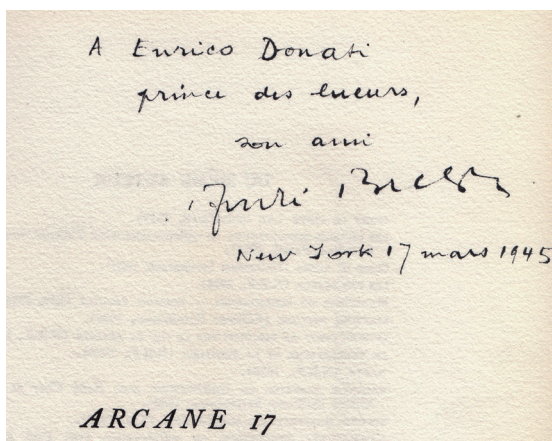 A Enrico Donati
prince des lueurs,
son ami
André Breton
New York 17 mars 1945
ARCANE 17